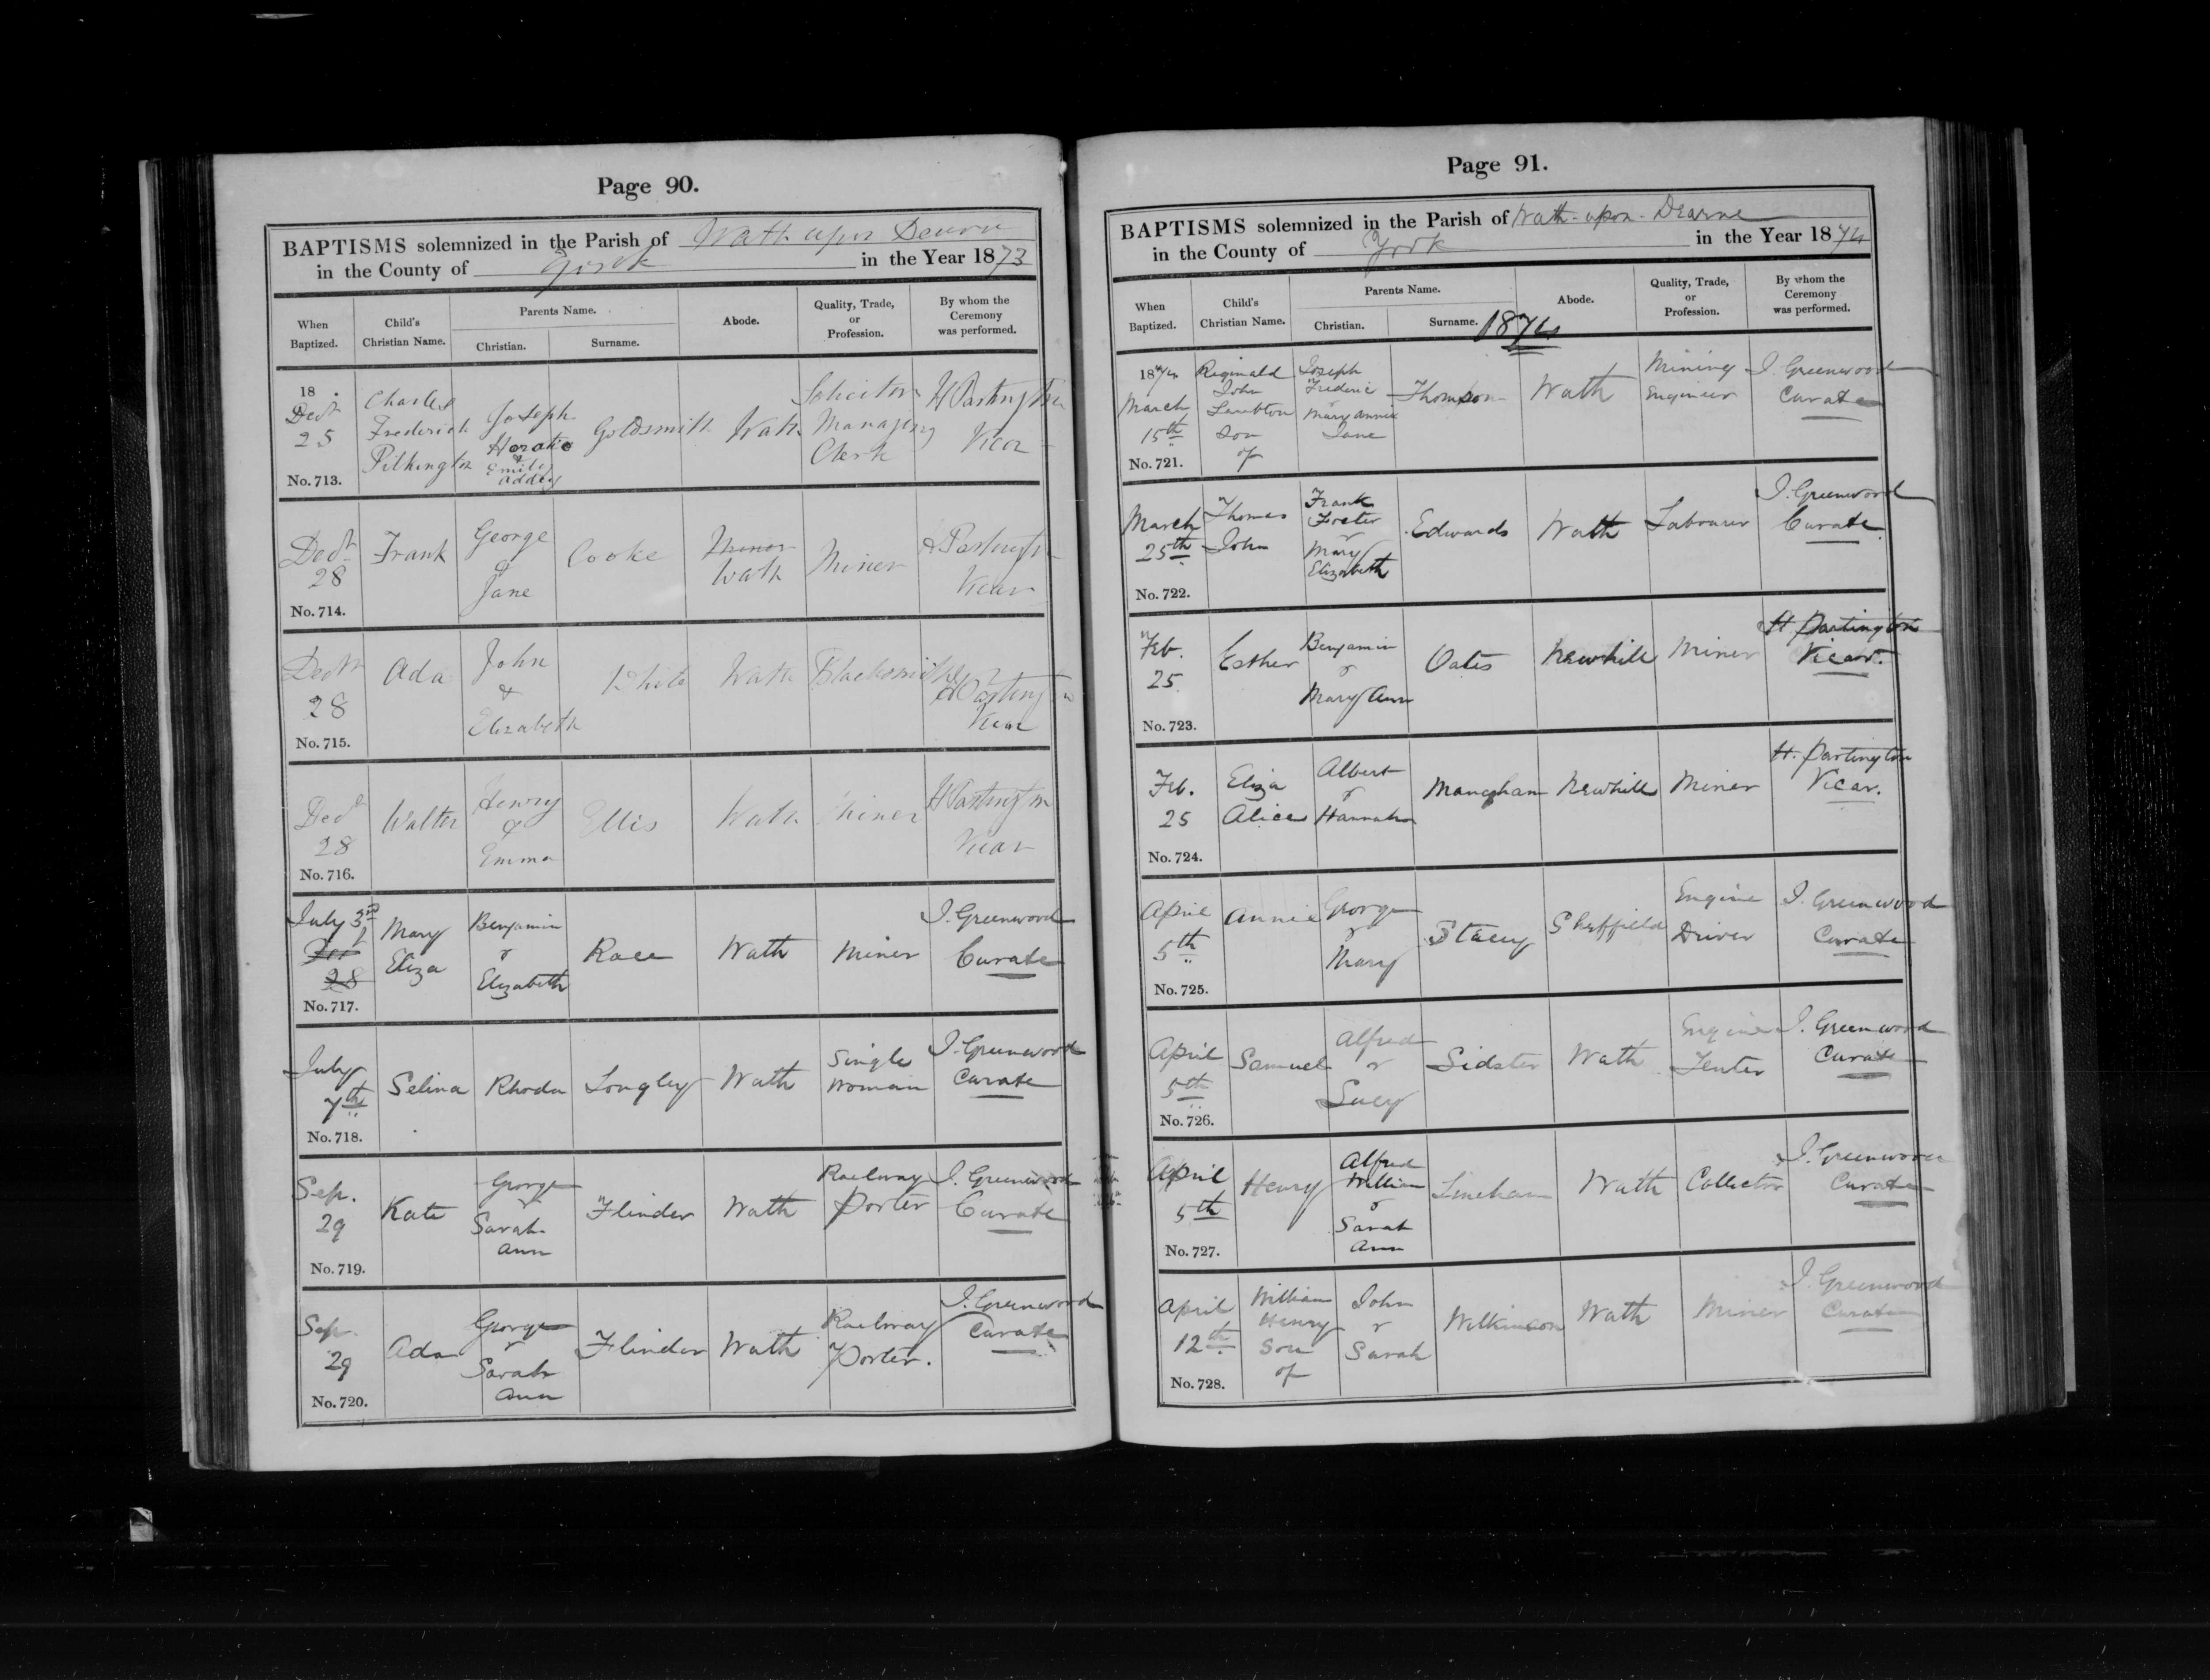 Page 90.
BAPTISMS solemnized in the Parish of Wath upon Dearne
in the County of York in the Year 1873
When Baptized. Child's Christian Name. Parents Name. Christian. Surname. Abode. Quality, Trade, or Profession. By whom the Ceremony was performed.
18 . Decr 25 No. 713. Charles Frederick Pilkington Joseph Horatio & Emily Addey Goldsmith Wath Solicitors Managing Clerk H Partington Vicar
Decr 28 No. 714. Frank George & Jane Cooke Wath Miner H Partington Vicar
Decr 28 No. 715. Ada John & Elizabeth White Wath Blacksmith H Partington Vicar
Decr 28 No. 716. Walter Henry & Emma Ellis Wath Miner H Partington Vicar
July 3rd 28 No. 717. Mary Eliza Benjamin & Elizabeth Race Wath Miner J. Greenwood Curate
July 7th No. 718. Selina Rhoda Longley Wath Single Woman J. Greenwood Curate
Sep. 29 No. 719. Kate George & Sarah Ann Flinder Wath Railway Porter J. Greenwood Curate
Sep. 29 No. 720. Ada George & Sarah Ann Flinder Wath Railway Porter. J. Greenwood Curate
Page 91.
BAPTISMS solemnized in the Parish of Wath-upon-Dearne
in the County of York in the Year 1874
When Baptized. Child's Christian Name. Parents Name. Christian. Surname. Abode. Quality, Trade, or Profession. By whom the Ceremony was performed.
1874
1874 March 15th No. 721. Reginald John Lambton Son of Joseph Frederic & Mary Annie Jane Thompson Wath Mining Engineer J. Greenwood Curate
March 25th No. 722. Thomas John Frank Foster & Mary Elizabeth Edwards Wath Labourer J. Greenwood Curate
Feb. 25 No. 723. Esther Benjamin & Mary Ann Oates Newhill Miner H. Partington Vicar.
Feb. 25 No. 724. Eliza Alice Albert & Hannah Newhill Miner H. Partington Vicar.
April 5th No. 725. Annie George & Mary Stacey Sheffield Engine Driver J. Greenwood Curate
April 5th No. 726. Samuel Alfred & Lucy Wath Engine Tenter J. Greenwood Curate
April 5th No. 727. Henry Alfred William & Sarah Ann Lineham Wath Collector J. Greenwood Curate
April 12th No. 728. William Henry Son of John & Sarah Wilkinson Wath Miner J. Greenwood Curate